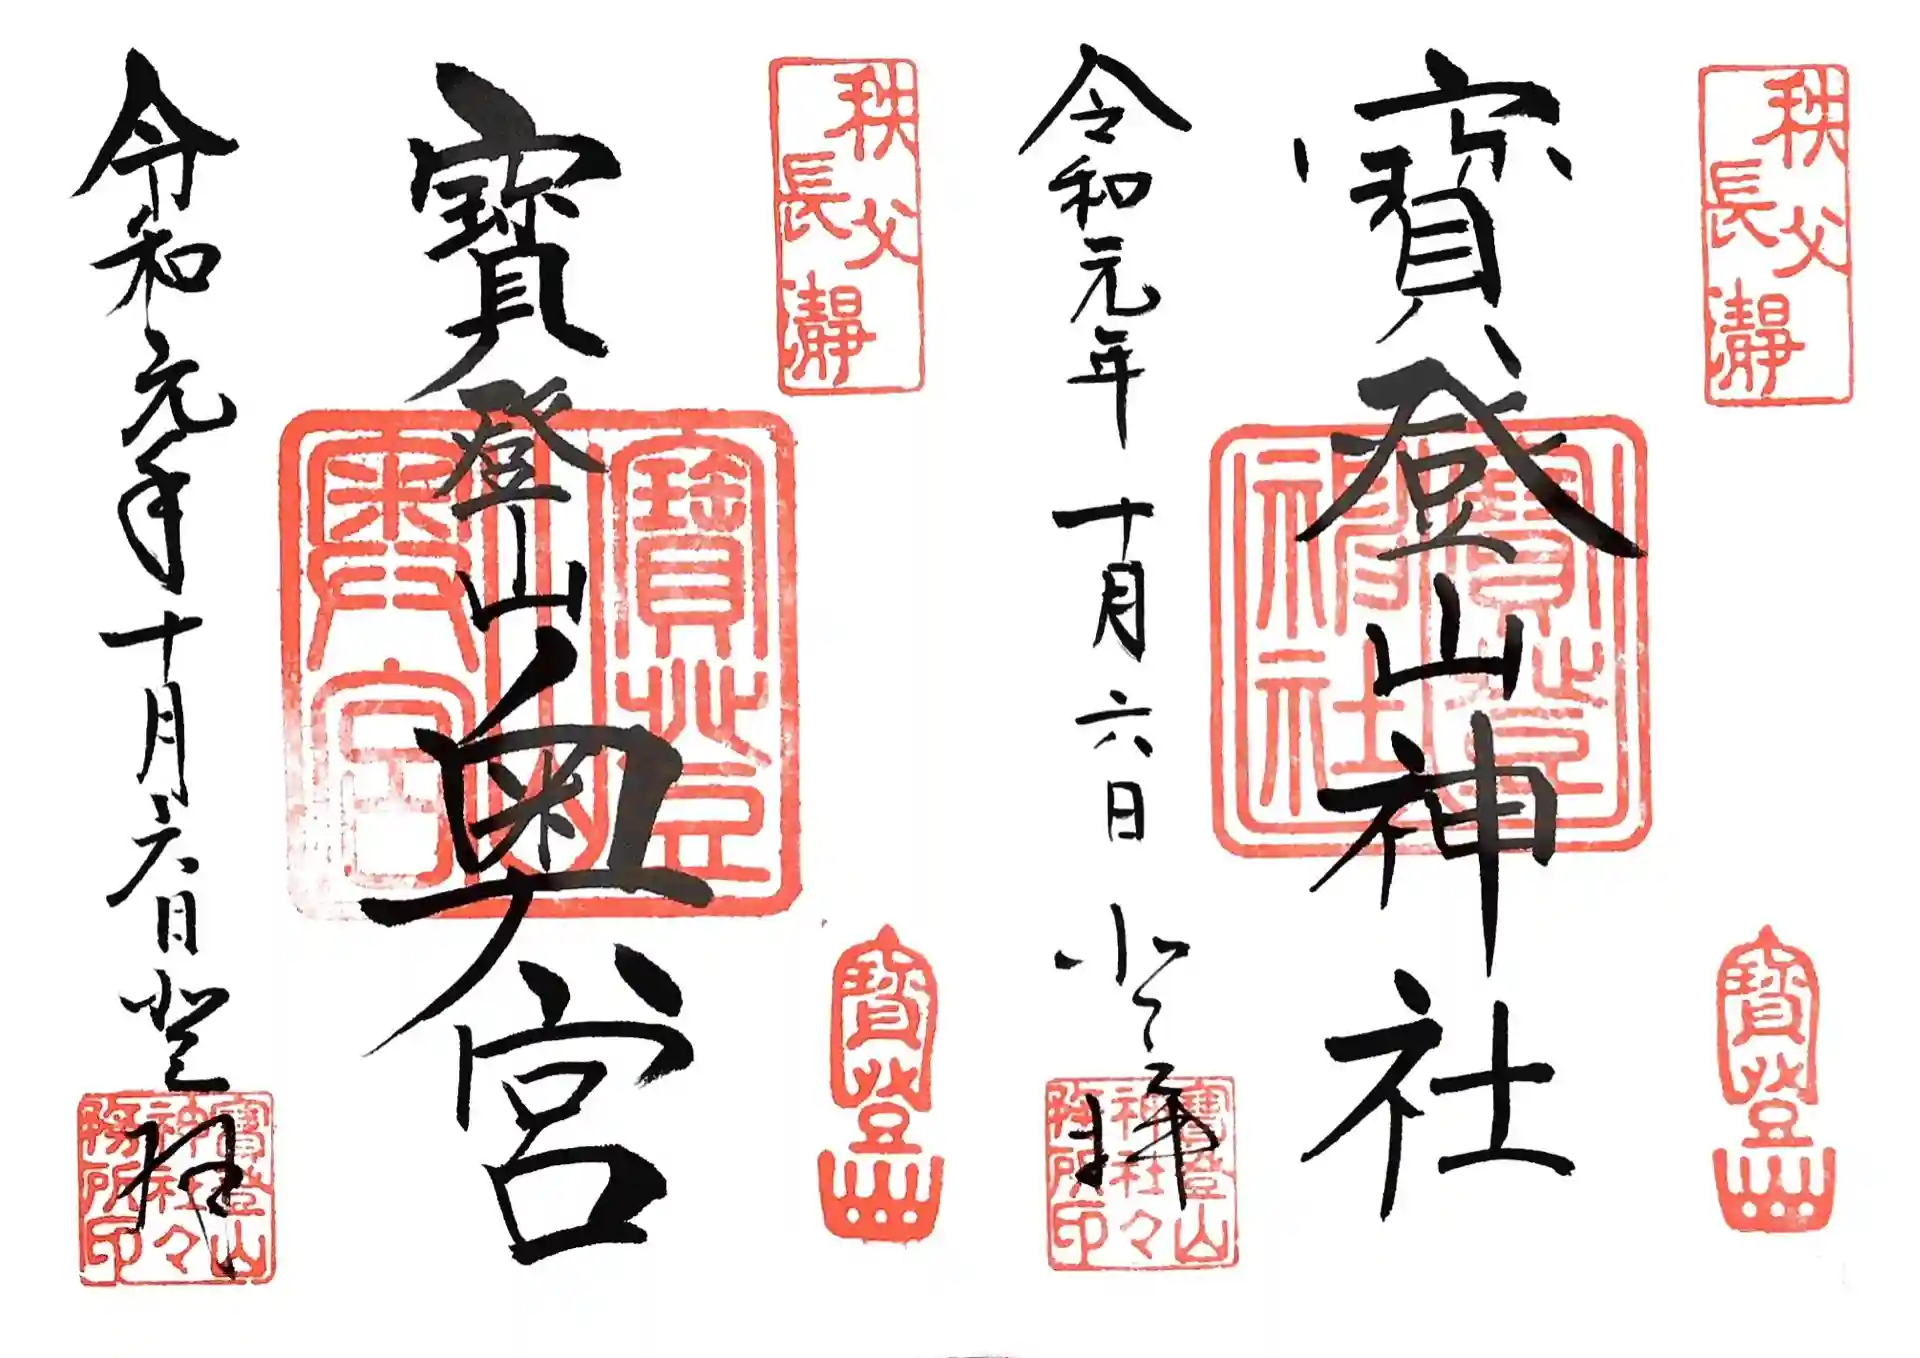 秩父
長瀞
寳登山
寳登山神社
寳登山
神社
令和元年十月六日登拝
寳登山
神社々
務所印
秩父
長瀞
寳登山
寳登山奥宮
寳登
山
奥宮
令和元年十月六日登拝
寳登山
神社々
務所印